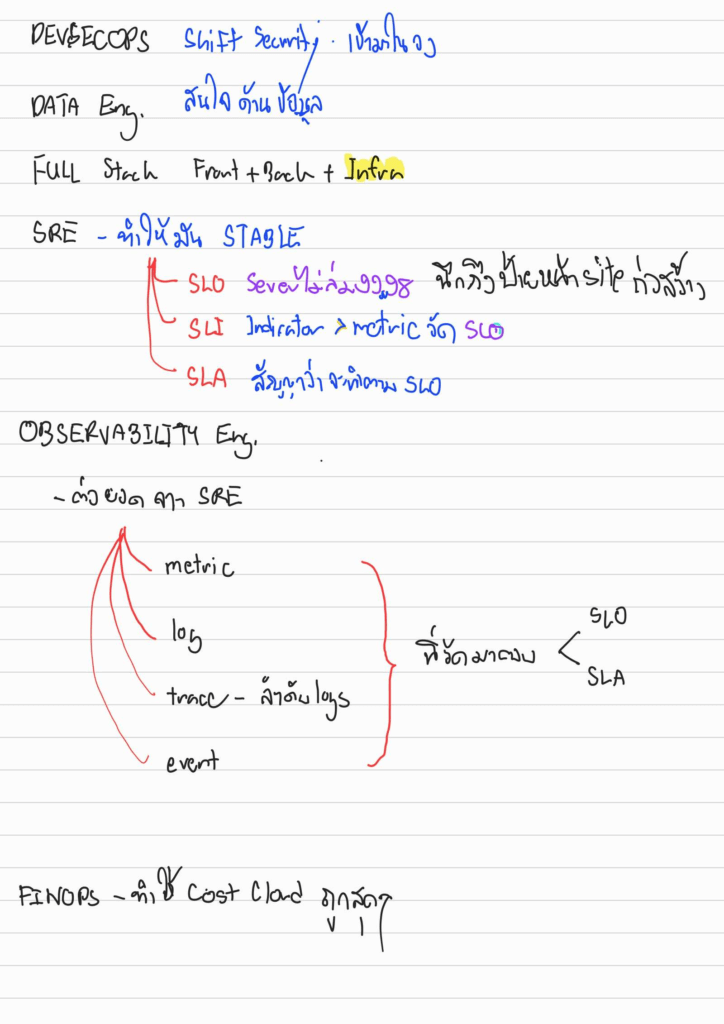 DEVSECOPS Shift Security เข้ามาใน วง
DATA Eng. สนใจ ด้าน ข้อมูล
FULL Stack Front + Back + Infra
SRE - ทำให้มัน STABLE
SLO Severไม่ล่ม99.98 นึกถึงป้ายหน้า site ก่อสร้าง
SLI Indicator > metric วัด SLO
SLA สัญญาว่า จะทำตาม SLO
OBSERVABILITY Eng.
- ต่อยอด จาก SRE
metric
log
trace - ลำดับ logs
event
ที่วัดมาตอบ
SLO
SLA
FINOPS - ทำให้ Cost Cloud ถูกสุดๆ